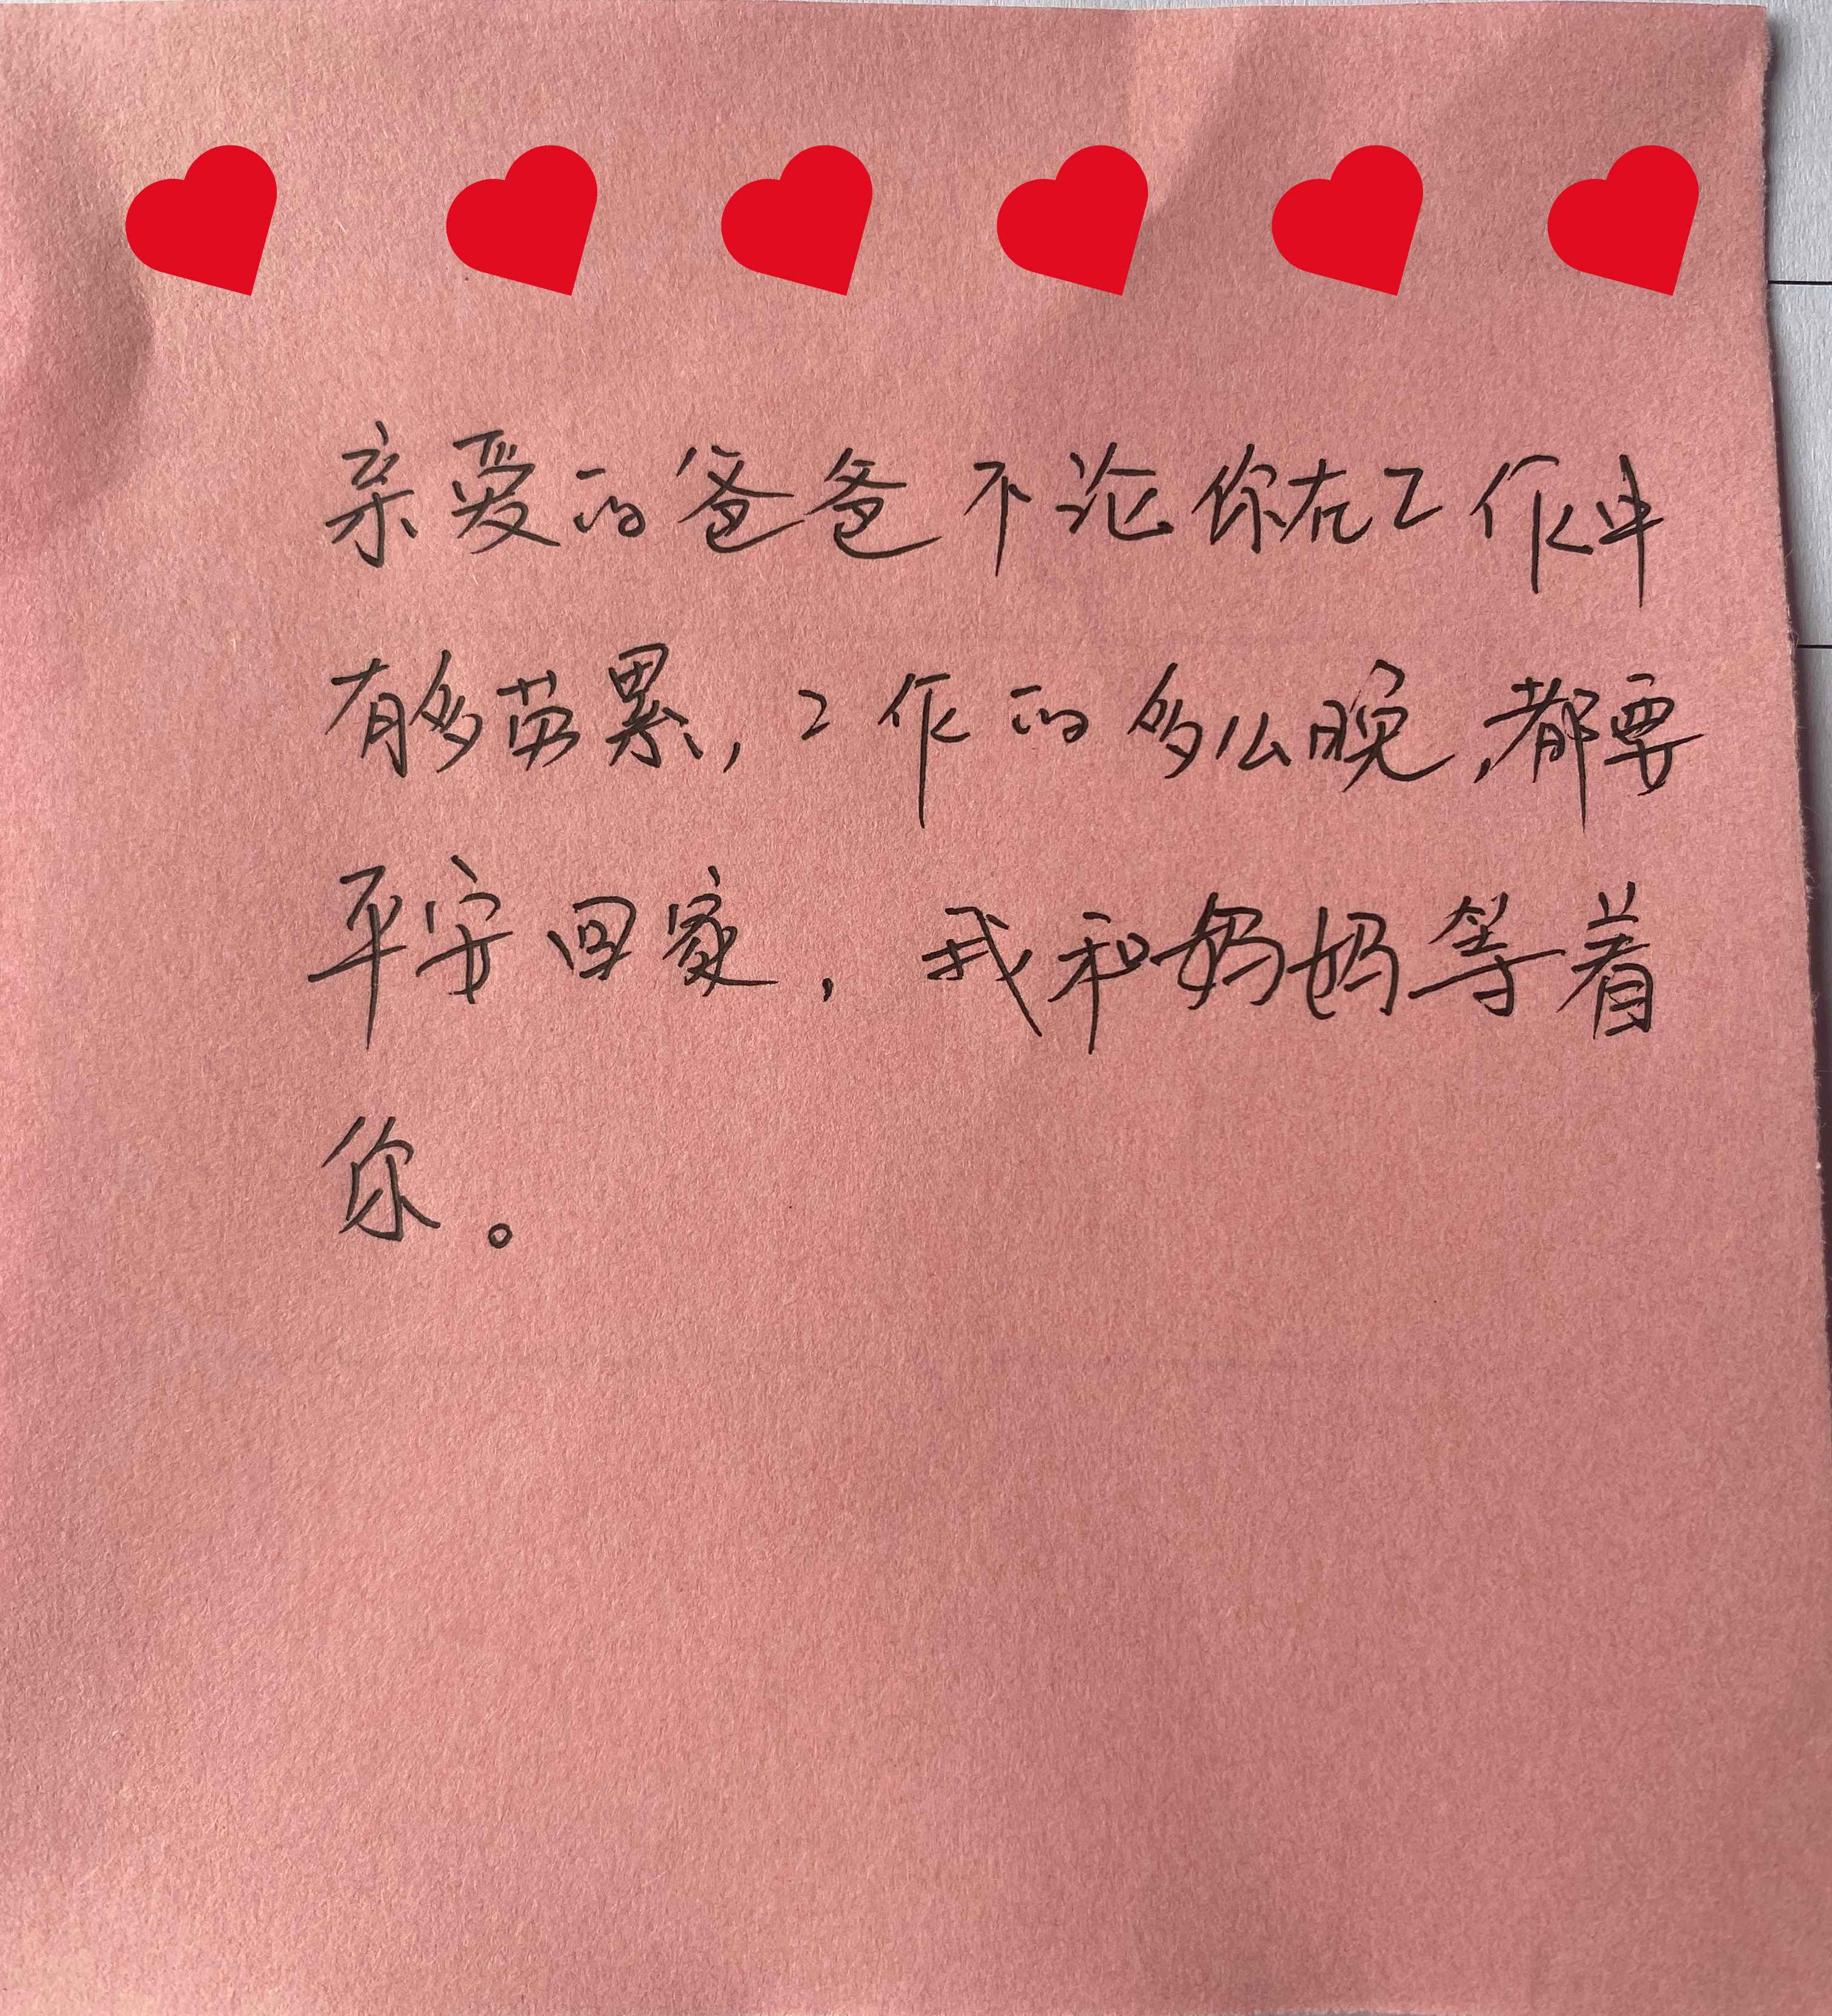 亲爱的爸爸不论你在工作中
有多劳累,工作的多么晚,都要
平安回家,我和妈妈等着
你。